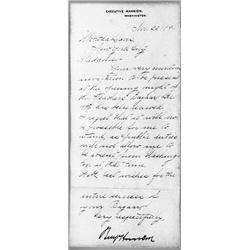 EXECUTIVE MANSION,
WASHINGTON.
Nov. 22
New York City
Madam:
Your very kind
invitation to be present
at the opening night of
the Bazaar
has been received.
I regret that it will not
be possible for me to
attend, as public duties
will not allow me to
be absent from Washing-
ton at that time.
With best wishes for the
entire success of
your Bazaar
Very respectfully,
Benj Harrison